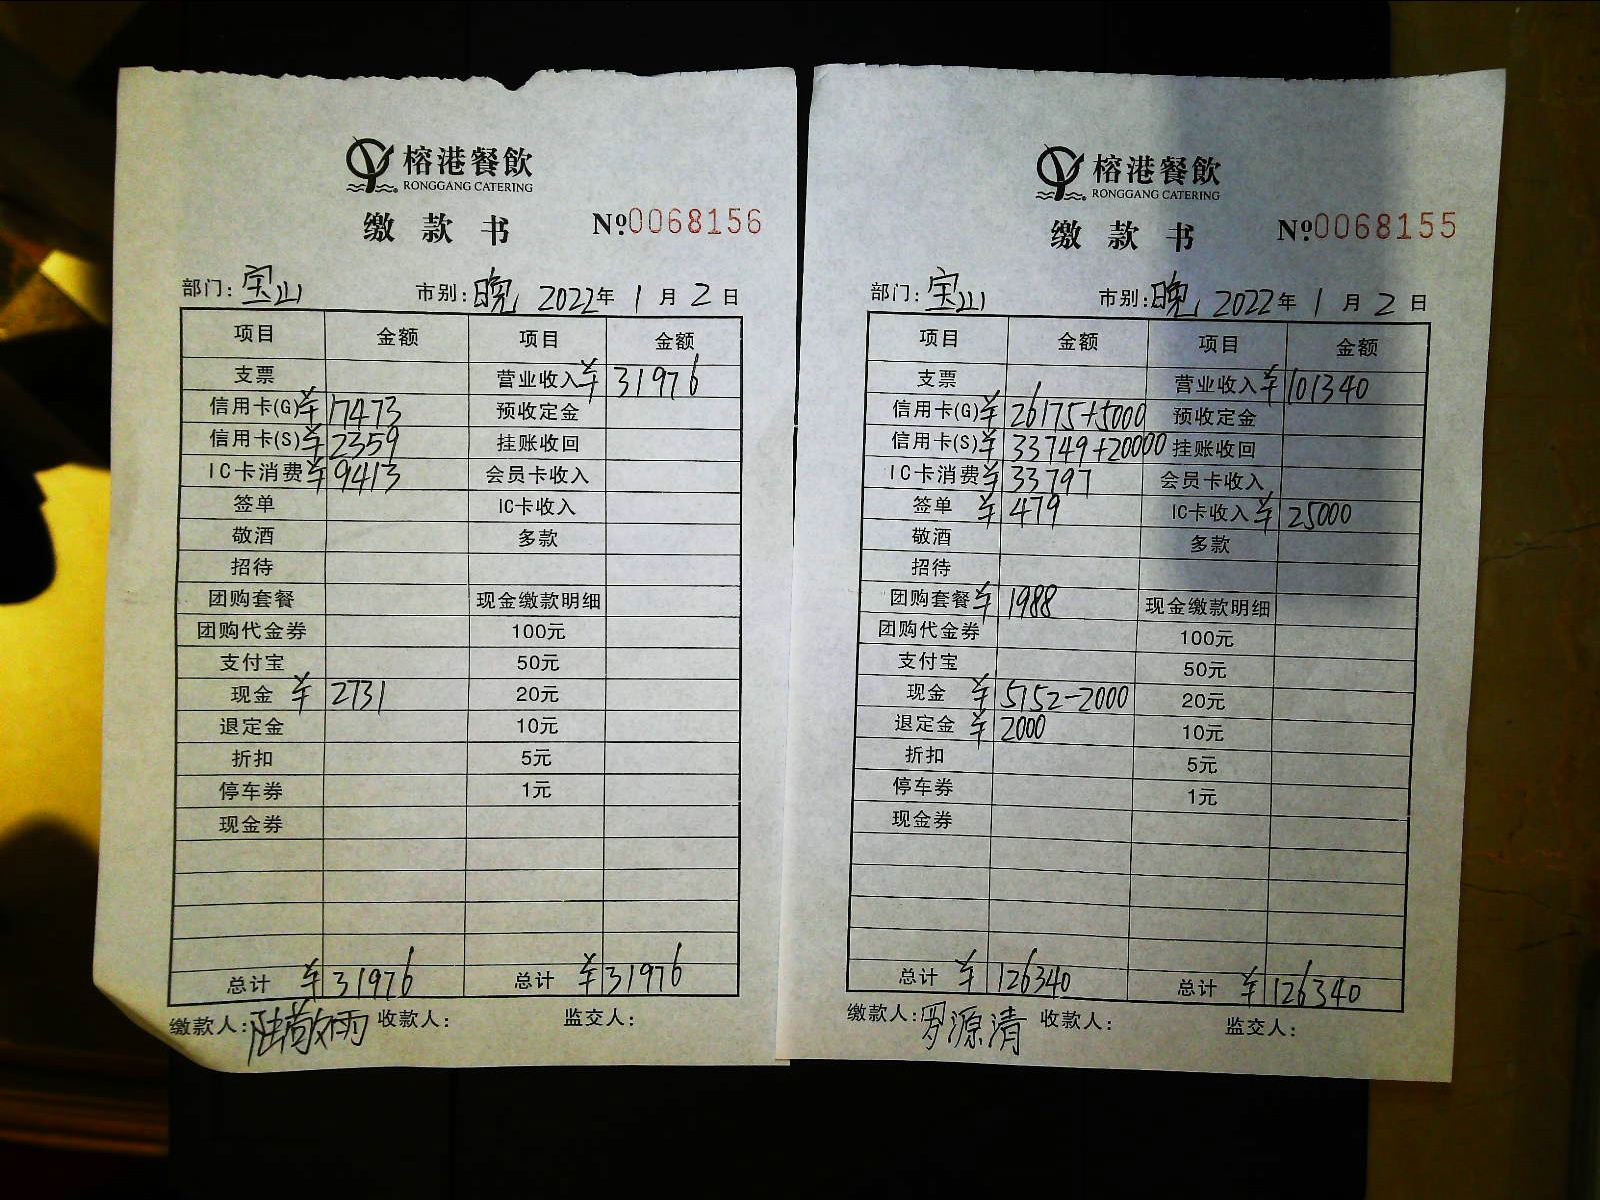 榕港餐飲
RONGGANG CATERING
缴款书 №0068156
部门: 宝山 市别: 晚 2022年 1月 2日
项目 金额 项目 金额
支票 营业收入 ¥31976
信用卡(G) ¥17473 预收定金
信用卡(S) ¥2359 挂账收回
IC卡消费 ¥9413 会员卡收入
签单 IC卡收入
敬酒 多款
招待
团购套餐 现金缴款明细
团购代金券 100元
支付宝 50元
现金 ¥2731 20元
退定金 10元
折扣 5元
停车券 1元
现金券
总计 ¥31976 总计 ¥31976
缴款人: 陆敬雨 收款人: 监交人:
榕港餐飲
RONGGANG CATERING
缴款书 №0068155
部门: 宝山 市别: 晚 2022年 1月 2日
项目 金额 项目 金额
支票 营业收入 ¥101340
信用卡(G) ¥26175+5000 预收定金
信用卡(S) ¥33749+20000 挂账收回
IC卡消费 ¥33797 会员卡收入
签单 ¥479 IC卡收入 ¥25000
敬酒 多款
招待
团购套餐 ¥1988 现金缴款明细
团购代金券 100元
支付宝 50元
现金 ¥5152-2000 20元
退定金 ¥2000 10元
折扣 5元
停车券 1元
现金券
总计 ¥126340 总计 ¥126340
缴款人: 罗源清 收款人: 监交人: